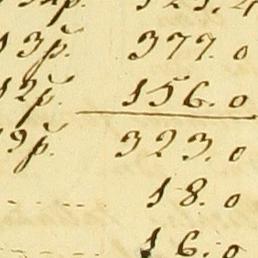 13p. 377. 0
12p. 156. 0
19p. 323. 0
18. 0
16. 0